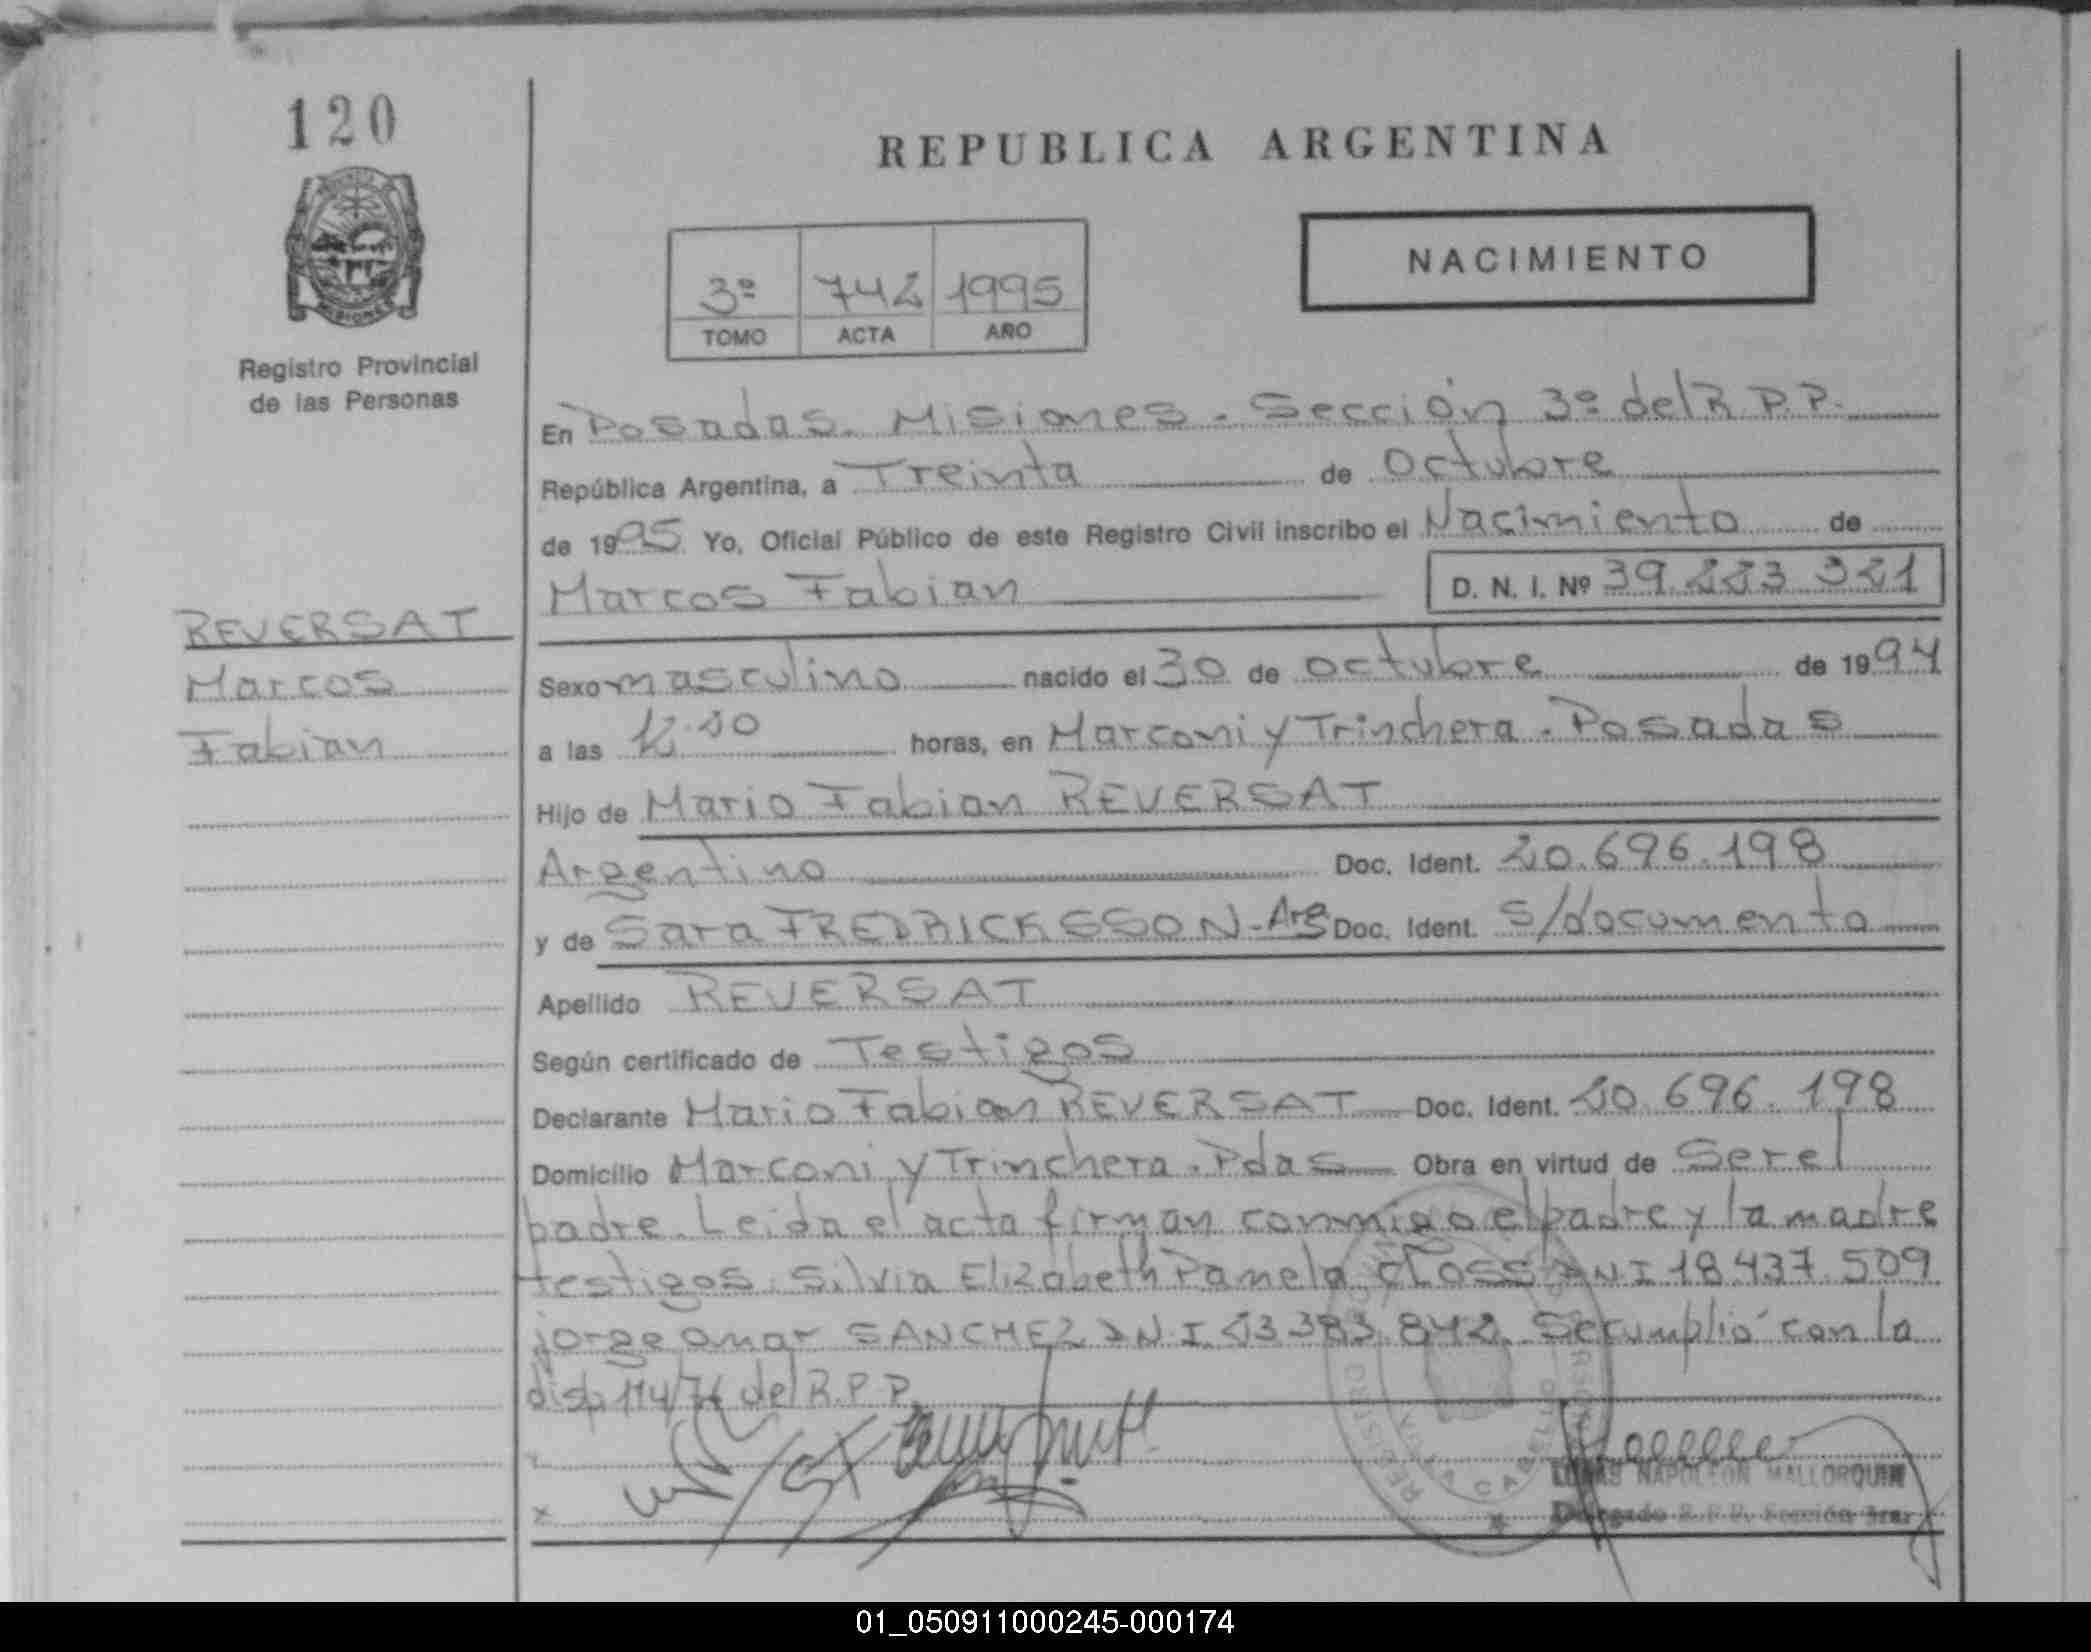 120
REPUBLICA ARGENTINA
NACIMIENTO
3º 742 1995
TOMO ACTA AÑO
Registro Provincial
de las Personas
En Posadas. Misiones - Sección 3º del R.P.P.
República Argentina, a Treinta de Octubre
de 1995 Yo, Oficial Público de este Registro Civil inscribo el Nacimiento de
Marcos Fabian D. N. I. Nº 39.223.321
REVERSAT
Marcos
Fabian
Sexo masculino nacido el 30 de octubre de 1994
a las horas, en Marconi y Trinchera - Posadas
Hijo de Mario Fabian REVERSAT
Argentino Doc. Ident. 20.696.198
y de Sara FREDRICKSSON - Arg Doc. Ident. s/documento
Apellido REVERSAT
Según certificado de Testigos
Declarante Mario Fabian REVERSAT Doc. Ident. 20.696.198
Domicilio Marconi y Trinchera. Pdas Obra en virtud de Ser el
padre. Leida el acta firman conmigo el padre y la madre
testigos. Silvia Elizabeth Pamela CLOSS DNI 18.437.509
jorge omar SANCHEZ DNI 23.383.842. Se cumplió con la
disp 114/74 del R.P.P.
LUCAS NAPOLEON MALLORQUIN
Delegado R.P.P. Sección 3ra.
01_050911000245-000174